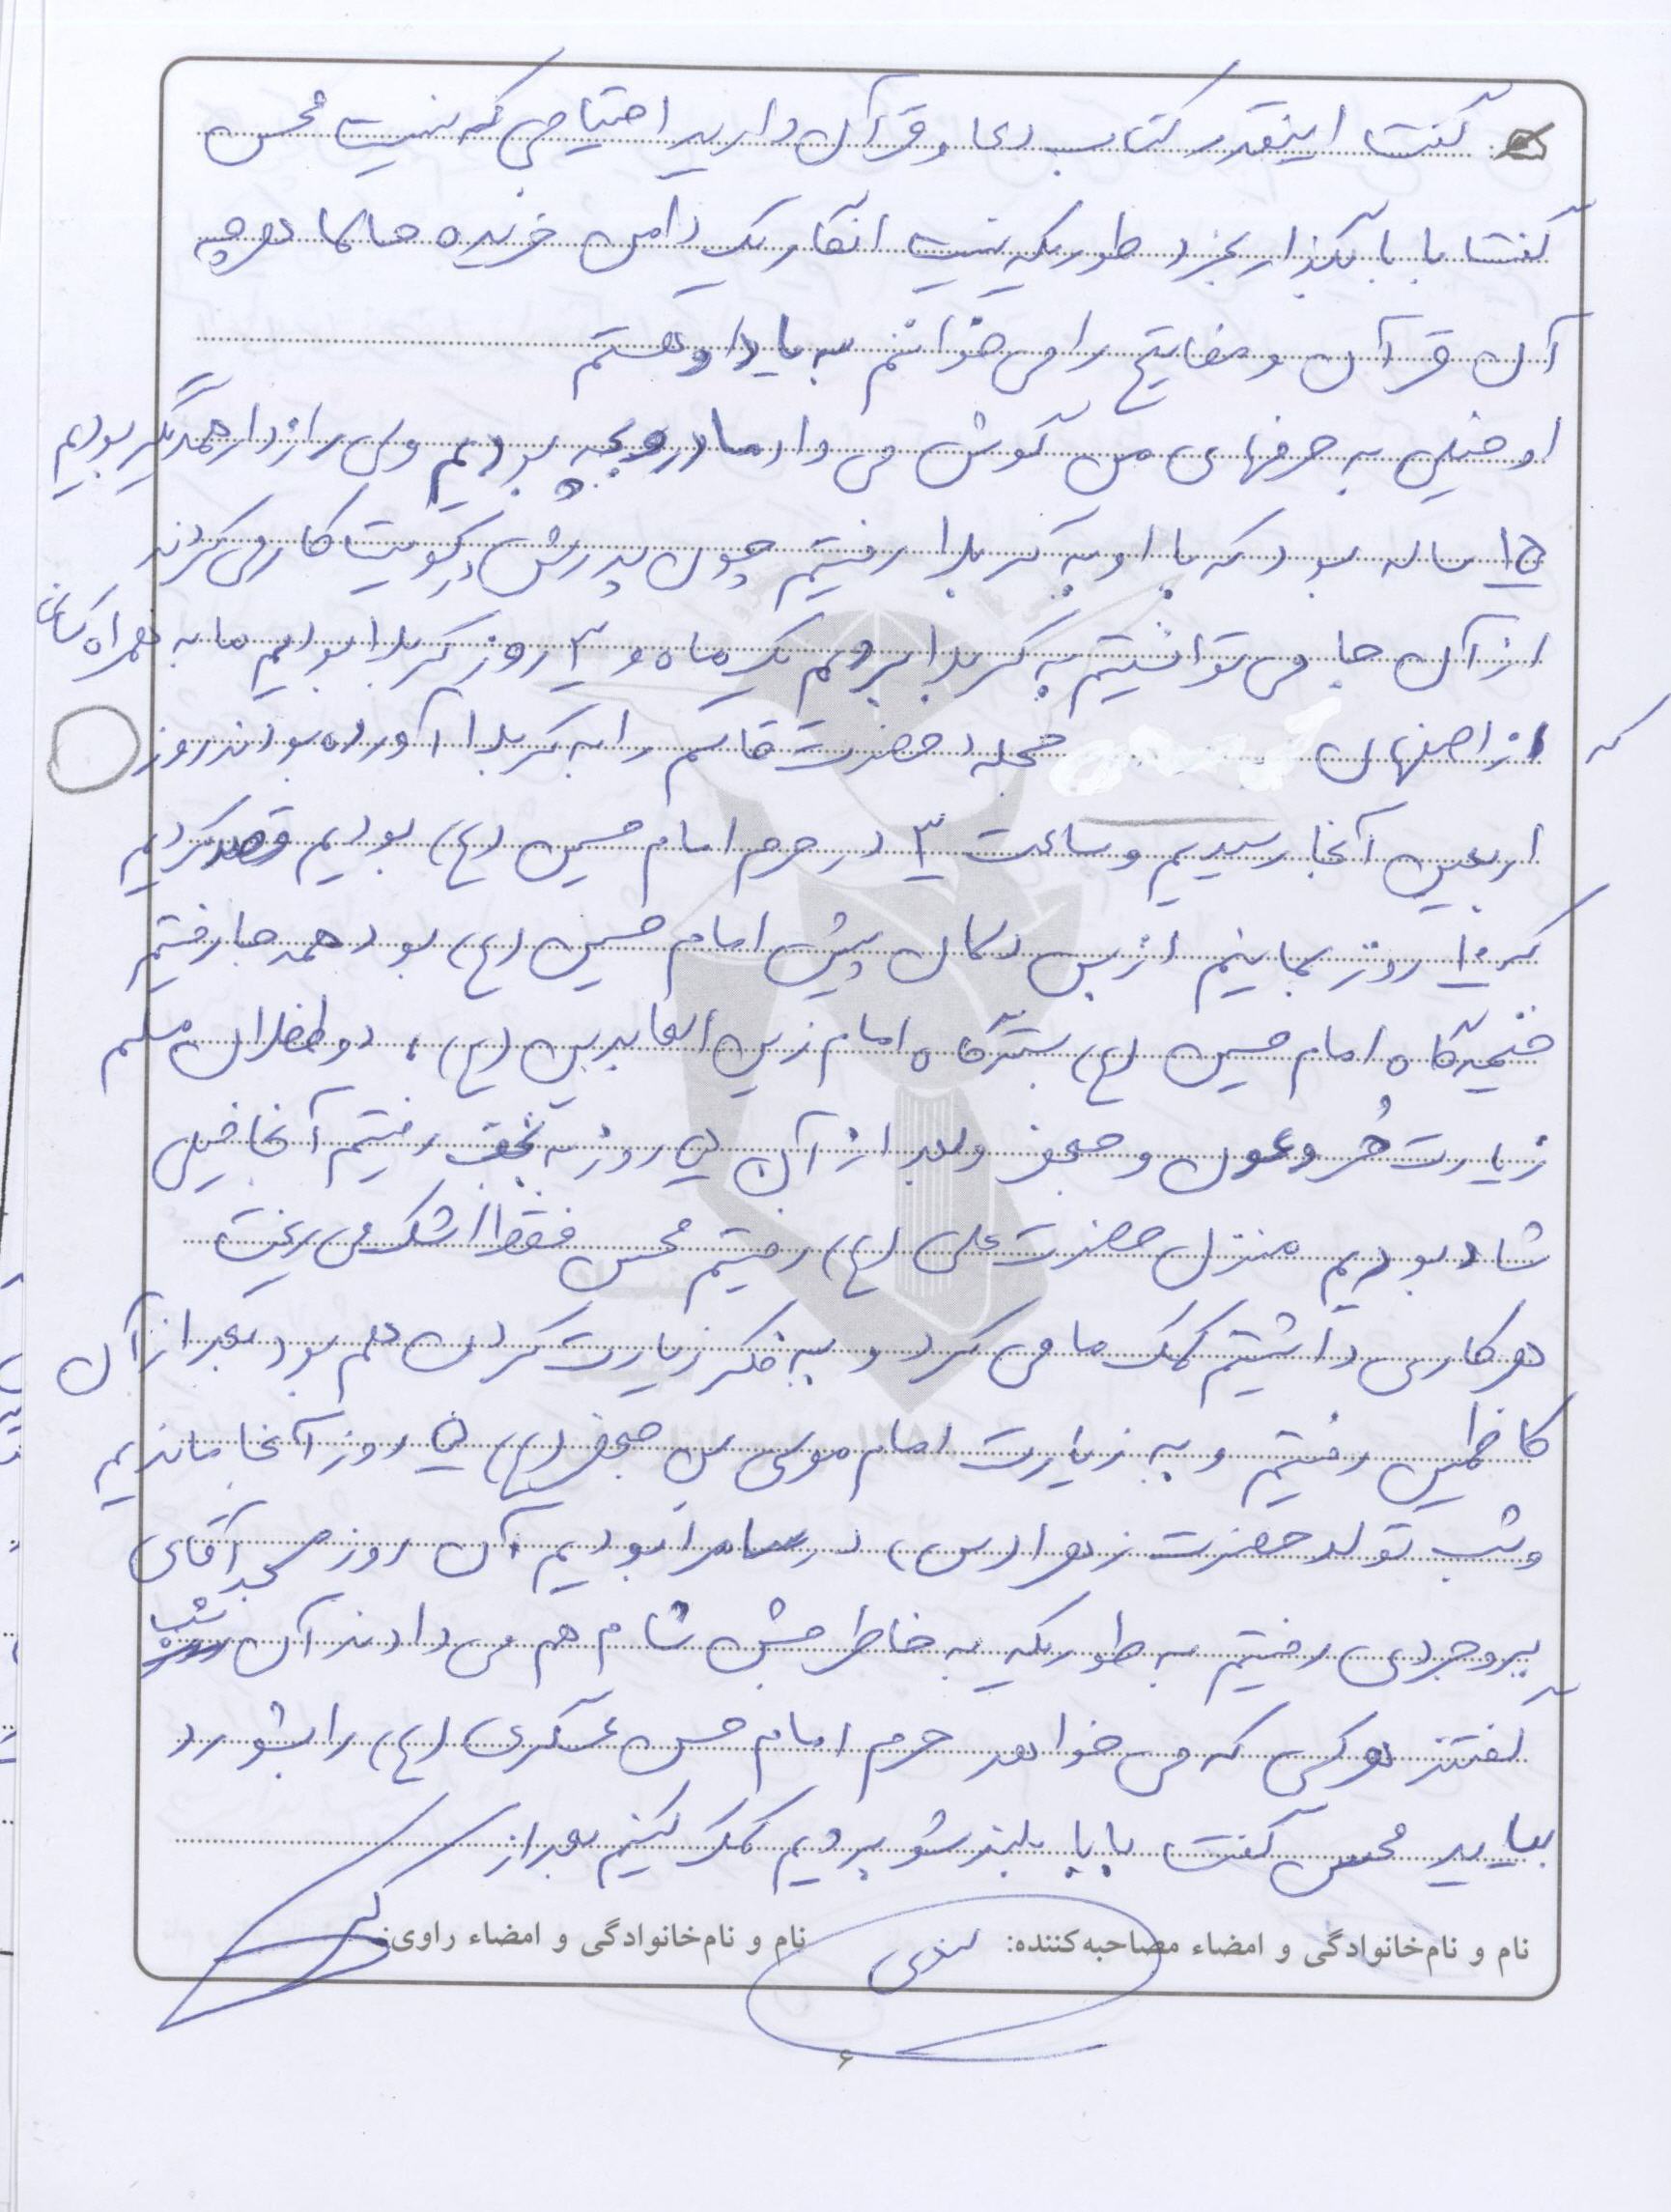 گفت اینقدر کتاب دعا و قرآن دارید احتیاجی که نیست محسن
گفت بابا بگذار بخرد طوریکه نیست انگار یک دامن خریده حالا هرچه
آن قرآن و مفاتیح را می خوانم به یاد او هستم
او خیلی به حرفهای من گوش می داد مادر و بچه بودیم ولی رازدار همدیگر بودیم
۱۵ ساله بود که با او به کربلا رفتیم چون پدرش در کویت کار می کردند
از آن جا می توانستیم به کربلا برویم یک ماه و ۳ روز کربلا بودیم ما به همراه کسانی
که از اصفهان حجله حضرت قاسم را به کربلا آورده بودند روز
اربعین آنجا رسیدیم و ساعت ۳ در حرم امام حسین (ع) بودیم قصد کردیم
که ۱۰ روز بمانیم از بس دلمان پیش امام حسین (ع) بود همه جا رفتیم
خیمه گاه امام حسین (ع) بسترگاه امام زین العابدین (ع)، دو طفلان مسلم
زیارت حُر و عون و جعفر و بعد از آن روز به نجف رفتیم آنجا خیلی
شاد بودیم منزل حضرت علی (ع) رفتیم محسن فقط اشک می ریخت
هر کاری داشتیم کمک ما می کرد و به فکر زیارت کردن هم بود بعد از آن
کاظمین رفتیم و به زیارت امام موسی بن جعفر (ع) ۵ روز آنجا ماندیم
و شب تولد حضرت زهرا (س)، در سامرا بودیم آن روز مسجد آقای
بروجردی رفتیم به طوریکه به خاطر جشن شام هم می دادند آن شب
گفتند هر کسی که می خواهد حرم امام حسن عسگری (ع) را بشورد
بیاید محسن گفت بابا بلند شو برویم کمک کنیم بعد از
نام و نام‌خانوادگی و امضاء مصاحبه‌کننده:
نام و نام‌خانوادگی و امضاء راوی:
۶